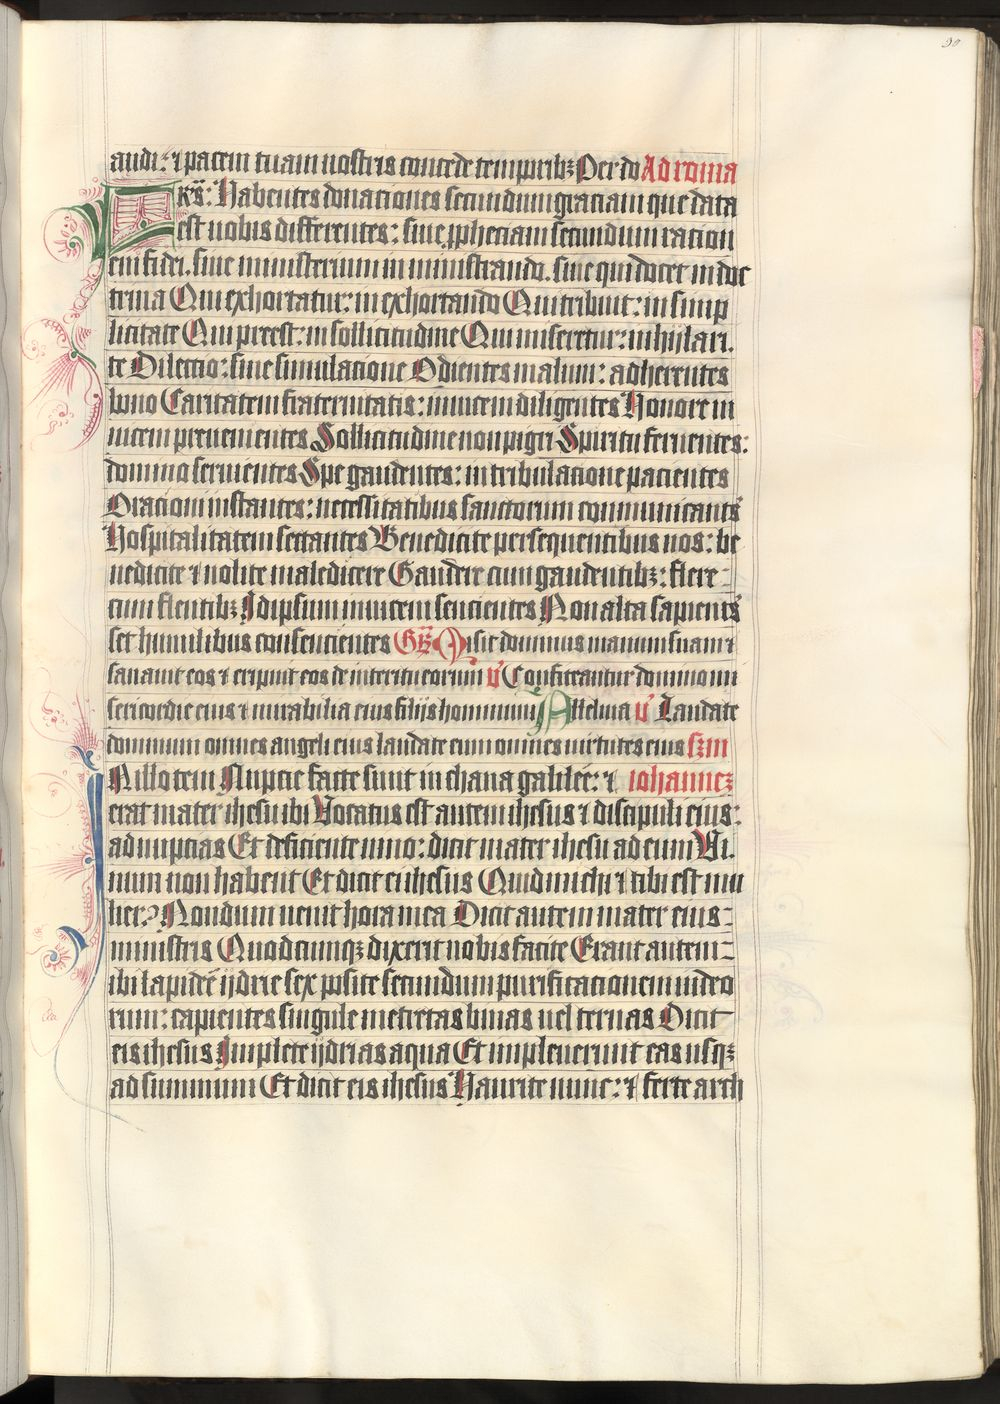 30
audi: ⁊ pacem tuam nostris concede temporibꝫ Per do Ad roma
Frs̄: Habentes donationes secundum graciam que data
est nobis differentes: siue ꝓpheciam secundum ration
em fidei. siue ministerium in ministrando. siue qui docet in doc
trina Qui exhortatur: in exhortando Qui tribuit: in simp
licitate Qui preest: in sollicitudine Qui miseretur: in hijlari.
te Dilectio: sine simulatione Odientes malum: adherentes
bono Caritatem fraternitatis: inuicem diligentes Honore in
uicem preuenientes Sollicitudine non pigri Spiritu feruentes:
domino seruientes Spe gaudentes: in tribulatione pacientes
Orationi instantes: necessitatibus sanctorum communicantes
Hospitalitatem sectantes Benedicite persequentibus uos: be
nedicite ⁊ nolite maledicere Gaudere cum gaudentibꝫ: flere
cum flentibꝫ Idipsum inuicem sencientes Non alta sapientes
set humilibus consencientes Gr̄ Misit dominus manum suam ⁊
sanauit eos ⁊ eripuit eos de interitu eorum v̄ Confiteantur domino mi
sericordie eius ⁊ mirabilia eius filijs hominum Alleluia v̄ Laudate
dominum omnes angeli eius laudate eum omnes uirtutes eius scd̄m
In illo tem Nuptie facte sunt in chana galilee: ⁊ iohannez
erat mater ihesu ibi Vocatus est autem ihesus ⁊ discipuli eius:
ad nuptias Et deficiente uino: dicit mater ihesu ad eum Vi.
num non habent Et dicit ei ihesus Quid michi ⁊ tibi est mu
lier? Nondum uenit hora mea Dicit autem mater eius
ministris Quodcumqꝫ dixerit uobis facite Erant autem
ibi lapidee ijdrie sex posite secundum purificationem iudeo
rum: capientes singule metretas binas uel ternas Dicit
eis ihesus Implete ijdrias aqua Et impleuerunt eas usqꝫ
ad summum Et dicit eis ihesus Haurite nunc: ⁊ ferte arch